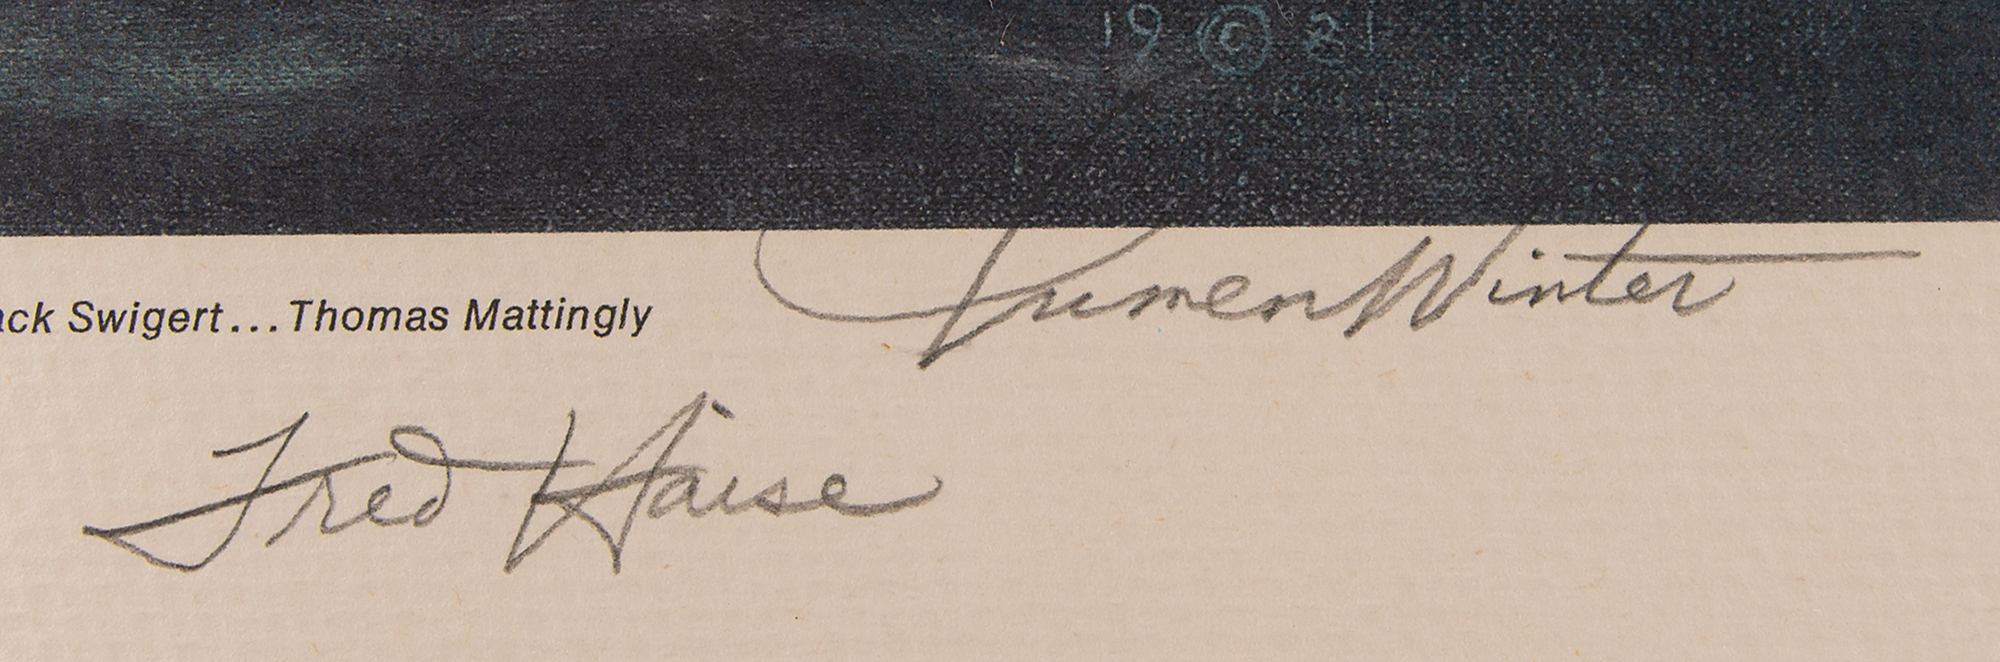 19 © 21
Lumen Winter
ack Swigert...Thomas Mattingly
Fred Haise